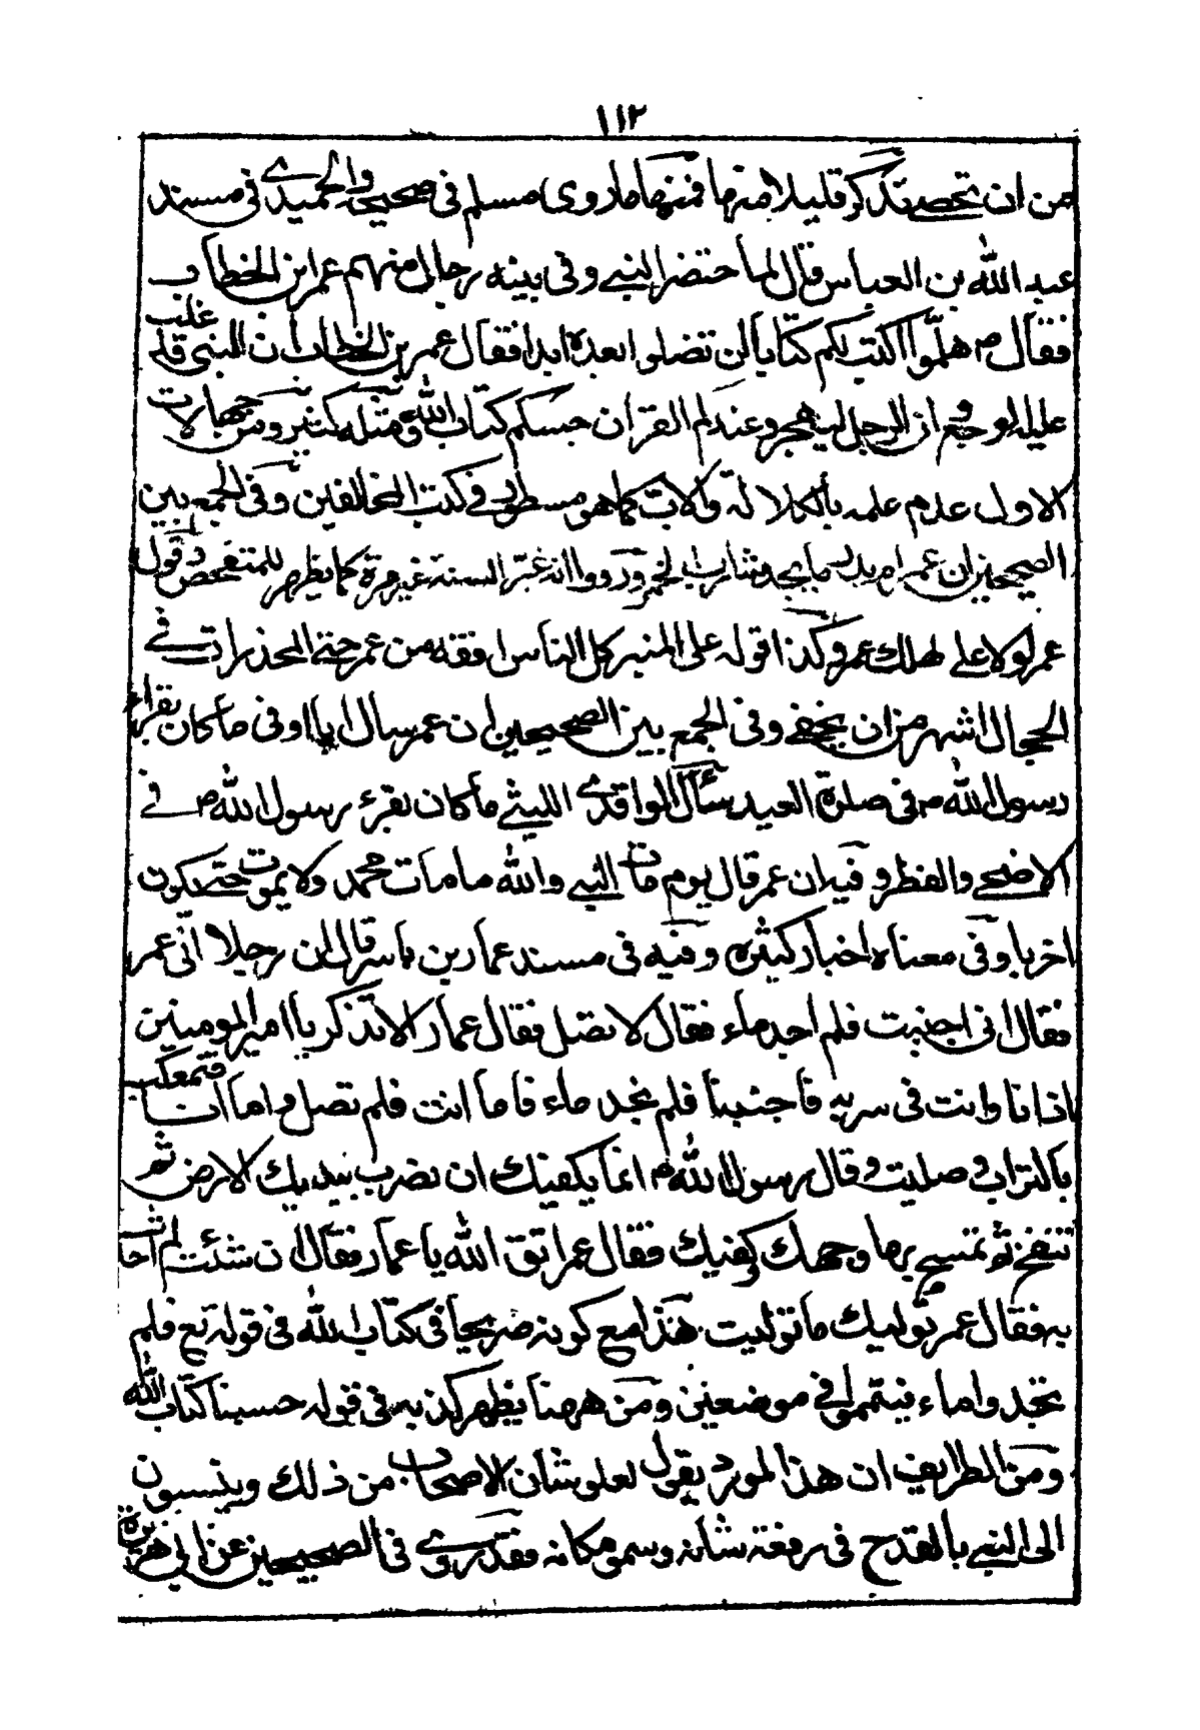 ١١٢
من ان تحصى تذكر قليلا منها فمنها ما روى مسلم فى صحيحه والحميدي فى مسند
عبد الله بن العباس قال لما احتضر النبي وفى بيته رجال منهم عمر ابن الخطاب
فقال ص هلموا اكتب لكم كتابا لن تضلوا بعده ابدا فقال عمر بن الخطاب ان النبى قد غلب
عليه الوجع ان الرجل ليهجر وعندكم القرآن حسبكم كتاب الله ومثله كثير ومن جهالات
الاول عدم علمه بالكلالة والاب كما هو مسطور في كتب المخالفين وفى الجمع بين
الصحيحين ان عمر لم يدر ما يحد شارب الخمر ورووا انه غير السنة غير مرة كما يظهر للمتفحص وقول
عمر لولا على لهلك عمر وكذا قوله على المنبر كل الناس افقه من عمر حتى المخدرات في
الحجال اشهر من ان يخفى وفى الجمع بين الصحيحين ان عمر سال ابا اوفى ما كان يقراء
رسول الله ص فى صلوة العيد سئال الواقدي الليثي ما كان يقرء رسول الله ص في
الاضحى والفطر وفيه ان عمر قال يوم مات النبي والله ما مات محمد ولا يموت حتى يكون
اخرنا وفى معناه اخبار كثيرة وفيه فى مسند عمار بن ياسر قال ان رجلا اتى عمر
فقال انى اجنبت فلم اجد ماء فقال لا تصل فقال عمار الا تذكر يا امير المومنين
اذ انا وانت فى سرية فاجنبنا فلم نجد ماء فاما انت فلم تصل واما انا فتمعكت
بالتراب وصليت وقال رسول الله ص انما يكفيك ان تضرب بيديك الارض ثم
تنفخ ثم تمسح بها وجهك وكفيك فقال عمر اتق الله يا عمار فقال ان شئت لم احدث
به فقال عمر نوليك ما توليت هذا مع كونه صريحا فى كتاب الله فى قوله تع فلم
تجدوا ماء فتيمموا في موضعين ومن ههنا يظهر كذبه فى قوله حسبنا كتاب الله
ومن الطرايف ان هذا المورد يقول لعلو شان الاصحاب من ذلك وينسبون
الى النبي بالقدح فى رفعة شانه وسمو مكانه فقد روي فى الصحيحين عن ابى هريرة